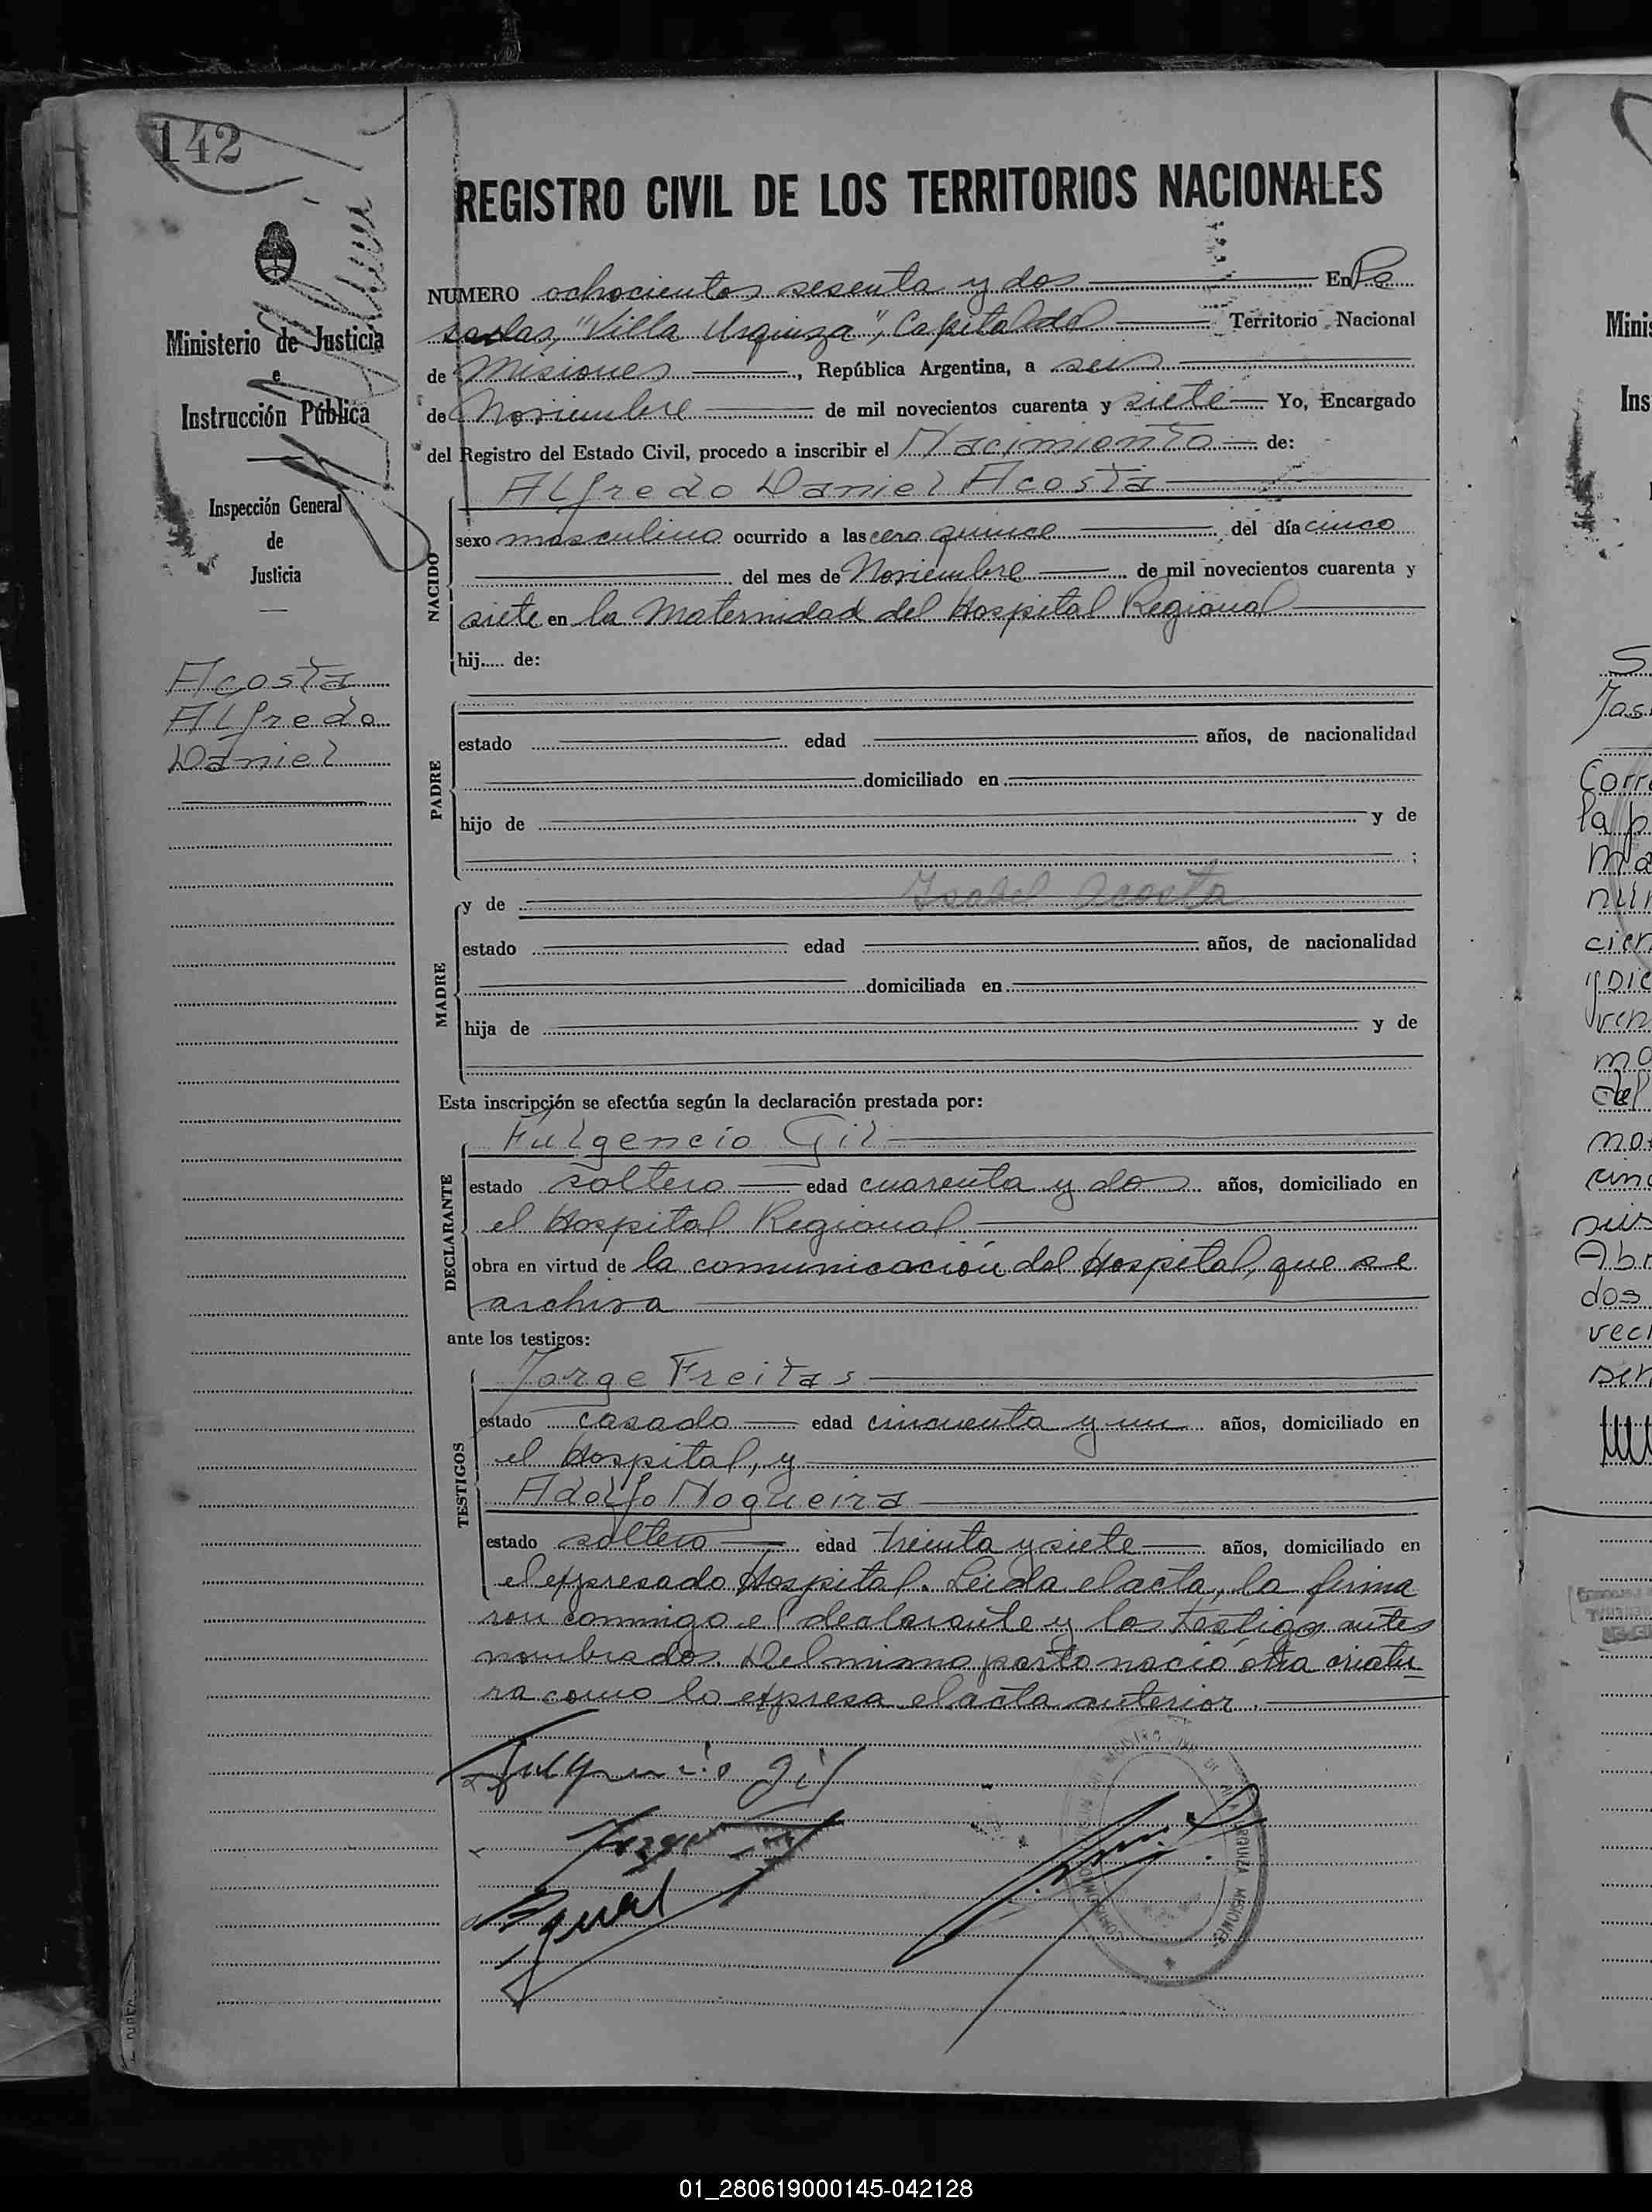 142
REGISTRO CIVIL DE LOS TERRITORIOS NACIONALES
Ministerio de Justicia
e
Instrucción Pública
Inspección General
de
Justicia
Acosta
Alfredo
Daniel
NUMERO ochocientos sesenta y dos En Po
sadas, "Villa Urquiza", Capital del Territorio Nacional
de Misiones, República Argentina, a seis
de Noviembre de mil novecientos cuarenta y siete Yo, Encargado
del Registro del Estado Civil, procedo a inscribir el Nacimiento de:
Alfredo Daniel Acosta
NACIDO
sexo masculino ocurrido a las cero quince del día cinco
del mes de Noviembre de mil novecientos cuarenta y
siete en la Maternidad del Hospital Regional
hij..... de:
PADRE
estado edad años, de nacionalidad
domiciliado en
hijo de y de
;
MADRE
y de Isabel Acosta
estado edad años, de nacionalidad
domiciliada en
hija de y de
Esta inscripción se efectúa según la declaración prestada por:
DECLARANTE
Fulgencio Gil
estado soltero edad cuarenta y dos años, domiciliado en
el Hospital Regional
obra en virtud de la comunicación del Hospital, que se
archiva
ante los testigos:
TESTIGOS
Jorge Freitas
estado casado edad cincuenta y un años, domiciliado en
el Hospital, y
Adolfo Nogueira
estado soltero edad treinta y siete años, domiciliado en
el expresado Hospital. Leida el acta, la firma
ron conmigo el declarante y los testigos antes
nombrados. Del mismo parto nació otra criatu
ra como lo expresa el acta anterior.
Fulgencio Gil
URQUIZA MISIONES
01_280619000145-042128